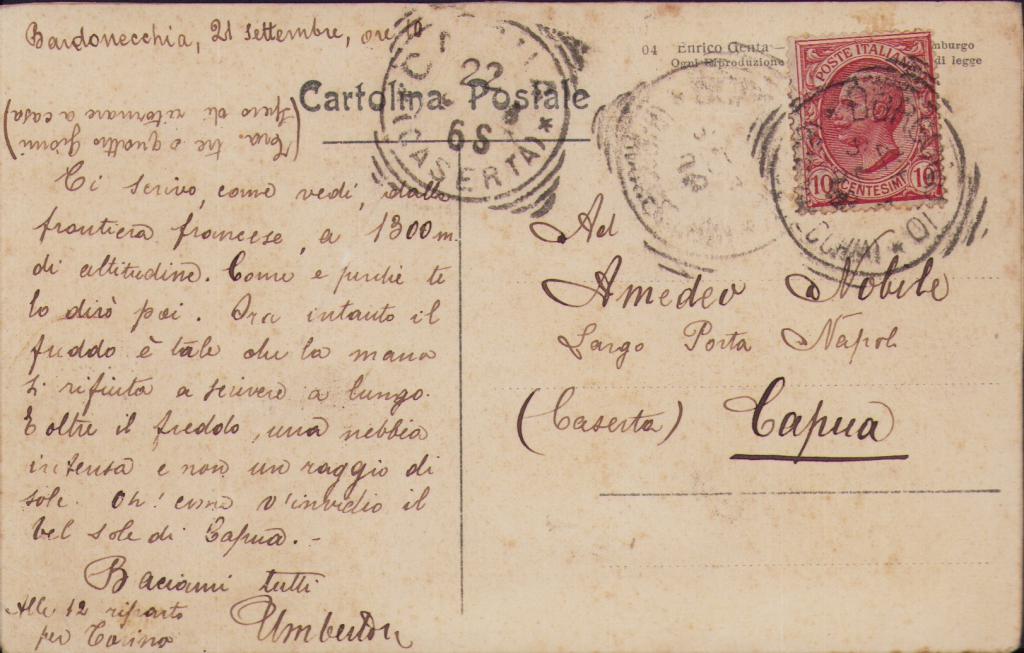 Bardonecchia, 21 settembre, ore 10
(Tra tre o quattro giorni
spero di ritornare a casa)
Ti scrivo, come vedi, dalla
frontiera francese, a 1300 m.
di altitudine. Come e perchè te
lo dirò poi. Ora intanto il
freddo è tale che la mano
si rifiuta a scrivere a lungo.
E oltre il freddo, una nebbia
intensa e non un raggio di
sole. Oh! come v'invidio il
bel sole di Capua. -
Baciami tutti
Umberto
Alle 12 riparto
per Torino
Cartolina Postale
04 Enrico Genta —
Ogni Riproduzione
mburgo
di legge
POSTE ITALIANE
10 CENTESIMI 10
22
6S
(CASERTA) *
Ad
Amedeo Nobile
Largo Porta Napoli
(Caserta) Capua